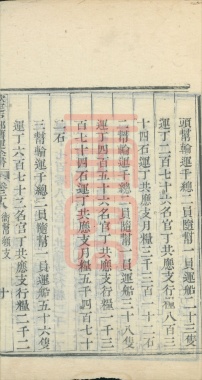 頭幫輪運千總二員隨幫一員運船二十三隻
運丁二百七十六名官丁共應支行糧八百三
十四石運丁共應支月糧三千三百一十二石
二幫輪運千總二員隨幫一員運船三十八隻
運丁四百五十六名官丁共應支行糧一千三
百七十四石運丁共應支月糧五千四百七十
二石
三幫輪運千總二員隨幫一員運船五十六隻
運丁六百七十二名官丁共應支行糧二千二
衛幫額支
十